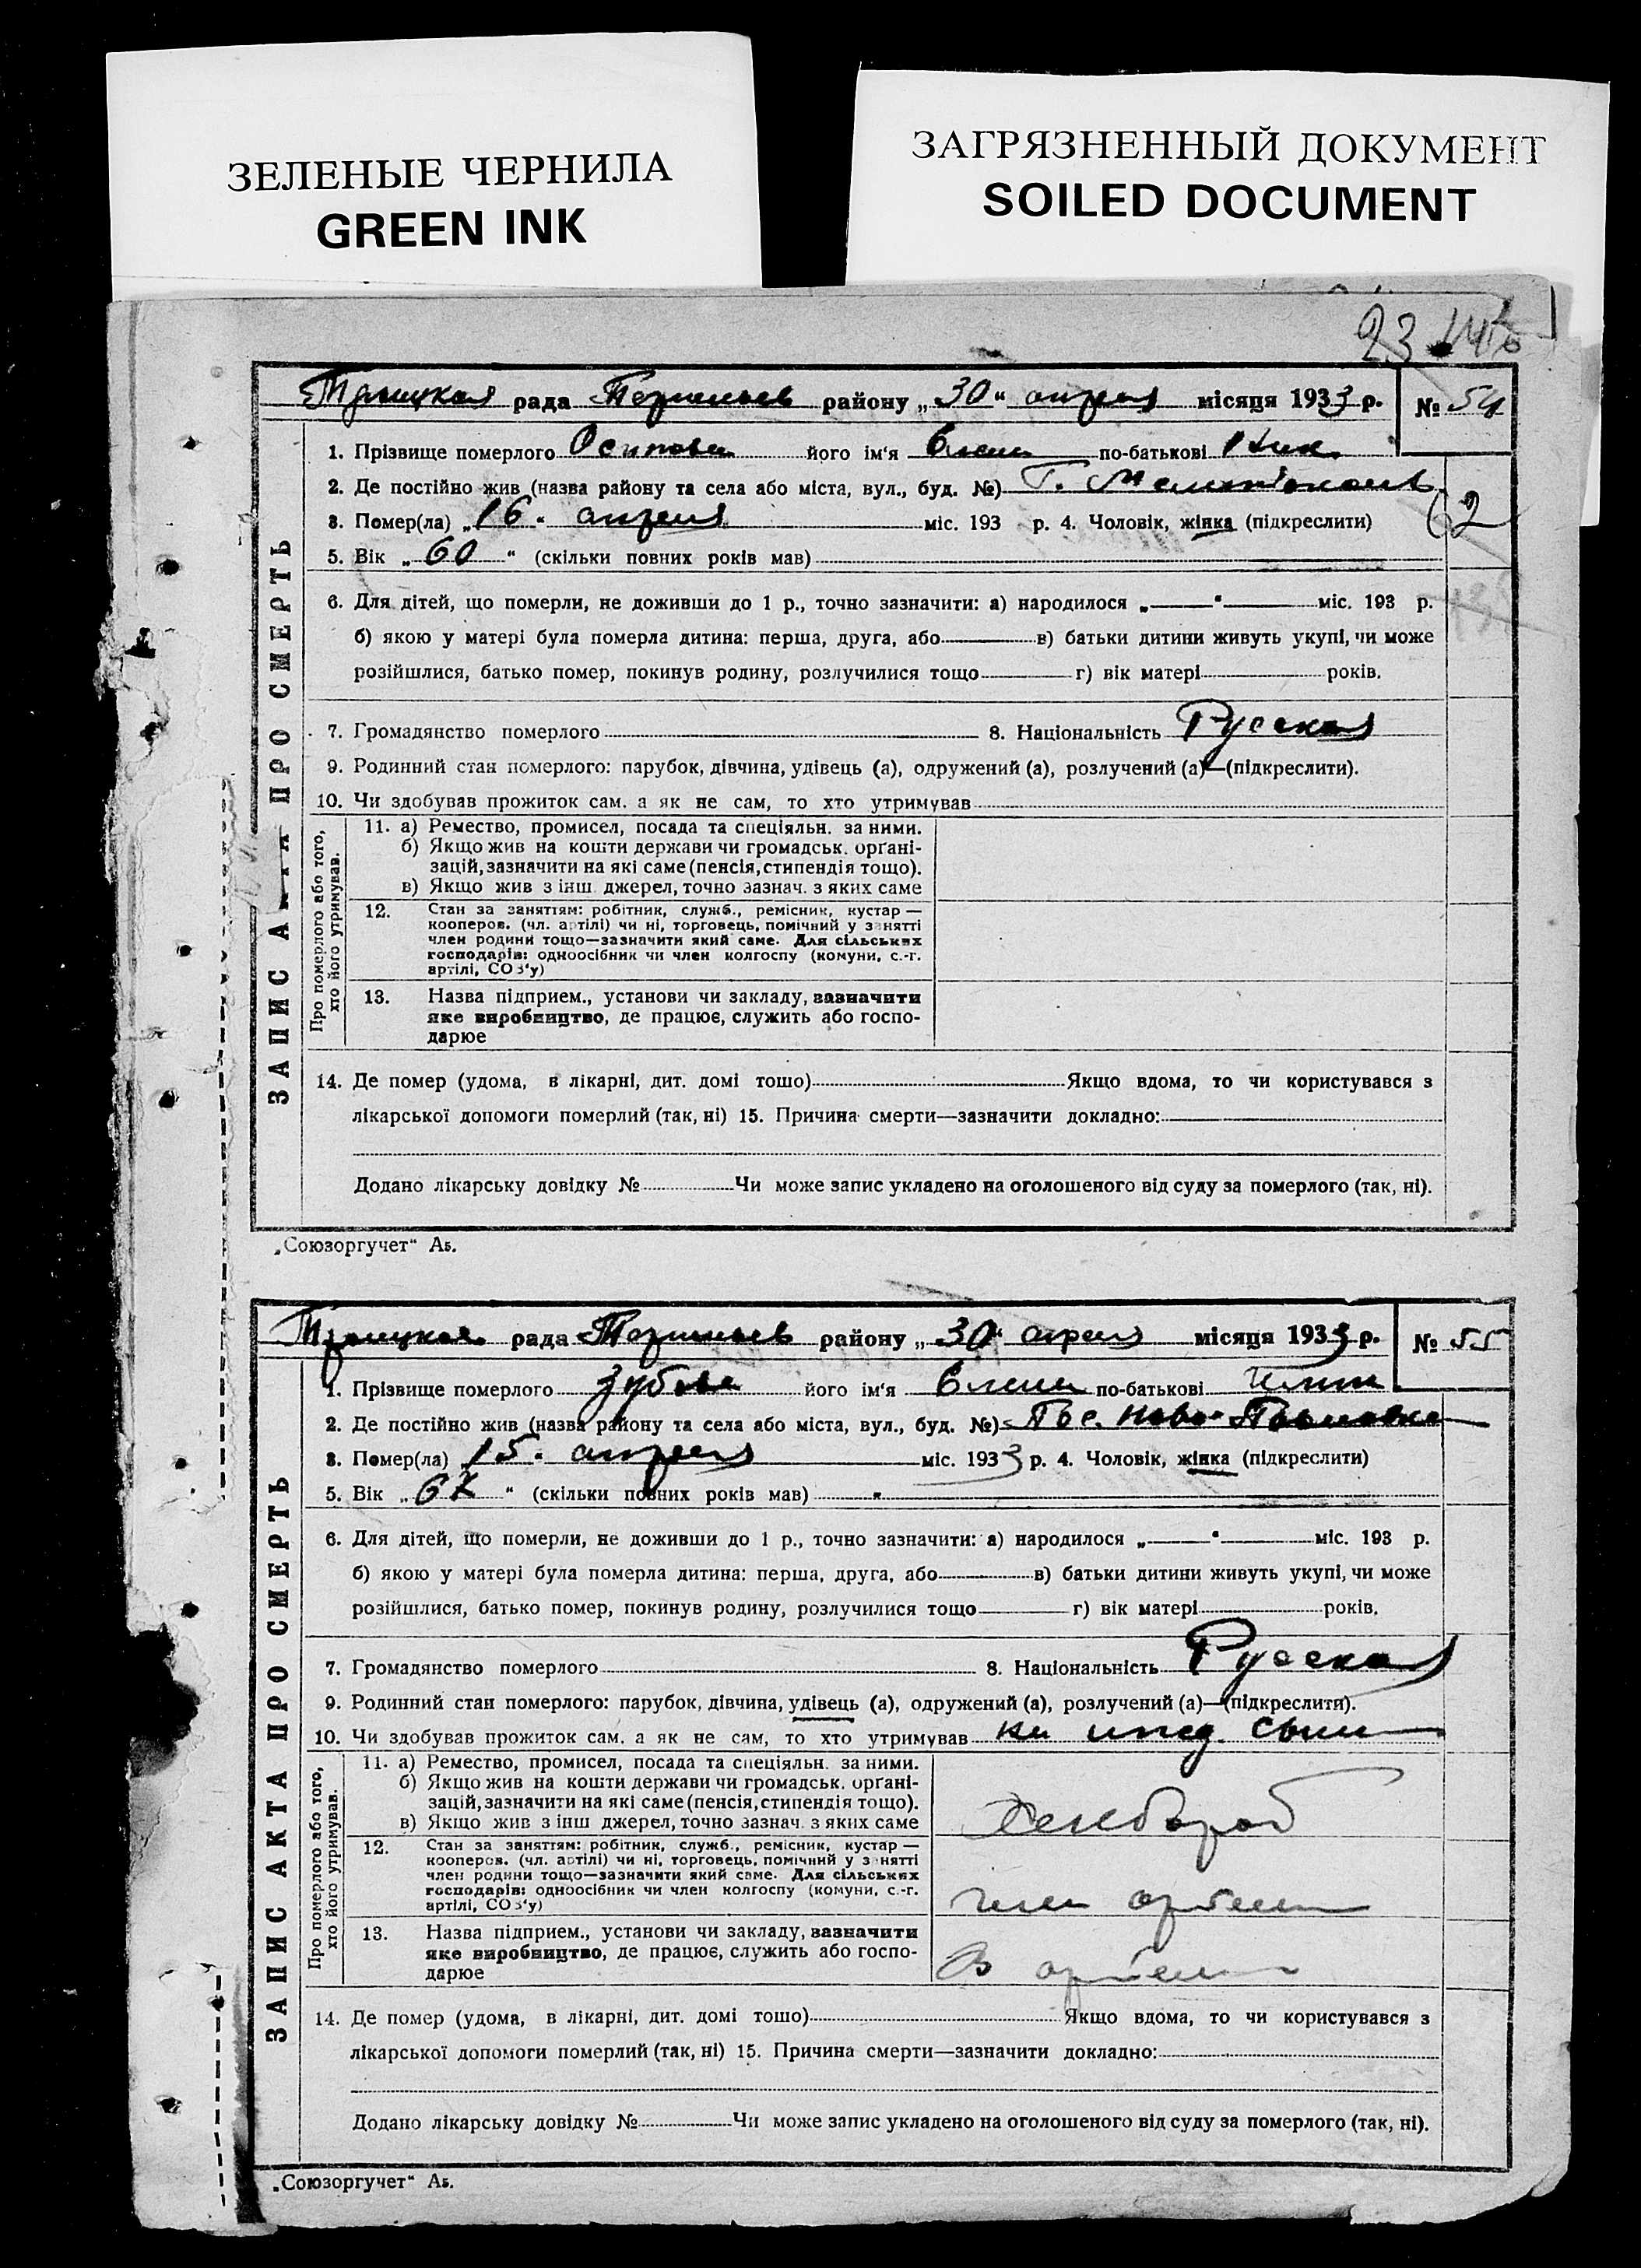 ЗЕЛЕНЫЕ ЧЕРНИЛА
GREEN INK
ЗАГРЯЗНЕННЫЙ ДОКУМЕНТ
SOILED DOCUMENT
23
рада району „30“ апреля місяця 1933 р. № 54
ЗАПИС АКТА ПРО СМЕРТЬ
1. Прізвище померлого Осипова його ім‘я Елена по-батькові
2. Де постійно жив (назва району та села або міста, вул., буд. №) Г.
3. Помер(ла) „16“ апреля міс. 193 р. 4. Чоловік, жінка (підкреслити)
62
5. Вік „60“ (скільки повних років мав)
6. Для дітей, що померли, не доживши до 1 р., точно зазначити: а) народилося „—“— міс. 193 р.
б) якою у матері була померла дитина: перша, друга, або— в) батьки дитини живуть укупі, чи може
розійшлися, батько помер, покинув родину, розлучилися тощо— г) вік матері років.
7. Громадянство померлого 8. Національність Русская
9. Родинний стан померлого: парубок, дівчина, удівець (а), одружений (а), розлучений (а)—(підкреслити).
10. Чи здобував прожиток сам. а як не сам, то хто утримував
Про померлого або того, хто його утримував.
11. а) Ремество, промисел, посада та спеціяльн. за ними.
б) Якщо жив на кошти держави чи громадськ. орґані-
зацій, зазначити на які саме (пенсія, стипендія тощо).
в) Якщо жив з інш джерел, точно зазнач. з яких саме
12. Стан за заняттям: робітник, служб., ремісник, кустар —
кооперов. (чл. артілі) чи ні, торговець, помічний у занятті
член родини тощо—зазначити який саме. Для сільських
господарів: одноосібник чи член колгоспу (комуни, с.-г.
артілі, СОЗ‘у)
13. Назва підприєм., установи чи закладу, зазначити
яке виробництво, де працює, служить або госпо-
дарює
14. Де помер (удома, в лікарні, дит. домі тошо) Якщо вдома, то чи користувався з
лікарської допомоги померлий (так, ні) 15. Причина смерти—зазначити докладно:
Додано лікарську довідку № Чи може запис укладено на оголошеного від суду за померлого (так, ні).
„Союзоргучет“ Аб.
рада району „30“ апреля місяця 1933 р. № 55
ЗАПИС АКТА ПРО СМЕРТЬ
1. Прізвище померлого Зубова його ім‘я Елена по-батькові
2. Де постійно жив (назва району та села або міста, вул., буд. №) Пос. Ново-
3. Помер(ла) „15“ апреля міс. 1933 р. 4. Чоловік, жінка (підкреслити)
5. Вік „67“ (скільки повних років мав)
6. Для дітей, що померли, не доживши до 1 р., точно зазначити: а) народилося „—“— міс. 193 р.
б) якою у матері була померла дитина: перша, друга, або— в) батьки дитини живуть укупі, чи може
розійшлися, батько помер, покинув родину, розлучилися тощо— г) вік матері років.
7. Громадянство померлого 8. Національність Русская
9. Родинний стан померлого: парубок, дівчина, удівець (а), одружений (а), розлучений (а)—(підкреслити).
10. Чи здобував прожиток сам. а як не сам, то хто утримував на ижд. сына
Про померлого або того, хто його утримував.
11. а) Ремество, промисел, посада та спеціяльн. за ними.
б) Якщо жив на кошти держави чи громадськ. орґані-
зацій, зазначити на які саме (пенсія, стипендія тощо).
в) Якщо жив з інш джерел, точно зазнач. з яких саме
12. Стан за заняттям: робітник, служб., ремісник, кустар —
кооперов. (чл. артілі) чи ні, торговець, помічний у занятті
член родини тощо—зазначити який саме. Для сільських
господарів: одноосібник чи член колгоспу (комуни, с.-г.
артілі, СОЗ‘у)
член артели
13. Назва підприєм., установи чи закладу, зазначити
яке виробництво, де працює, служить або госпо-
дарює
в артели
14. Де помер (удома, в лікарні, дит. домі тошо) Якщо вдома, то чи користувався з
лікарської допомоги померлий (так, ні) 15. Причина смерти—зазначити докладно:
Додано лікарську довідку № Чи може запис укладено на оголошеного від суду за померлого (так, ні).
„Союзоргучет“ Аб.